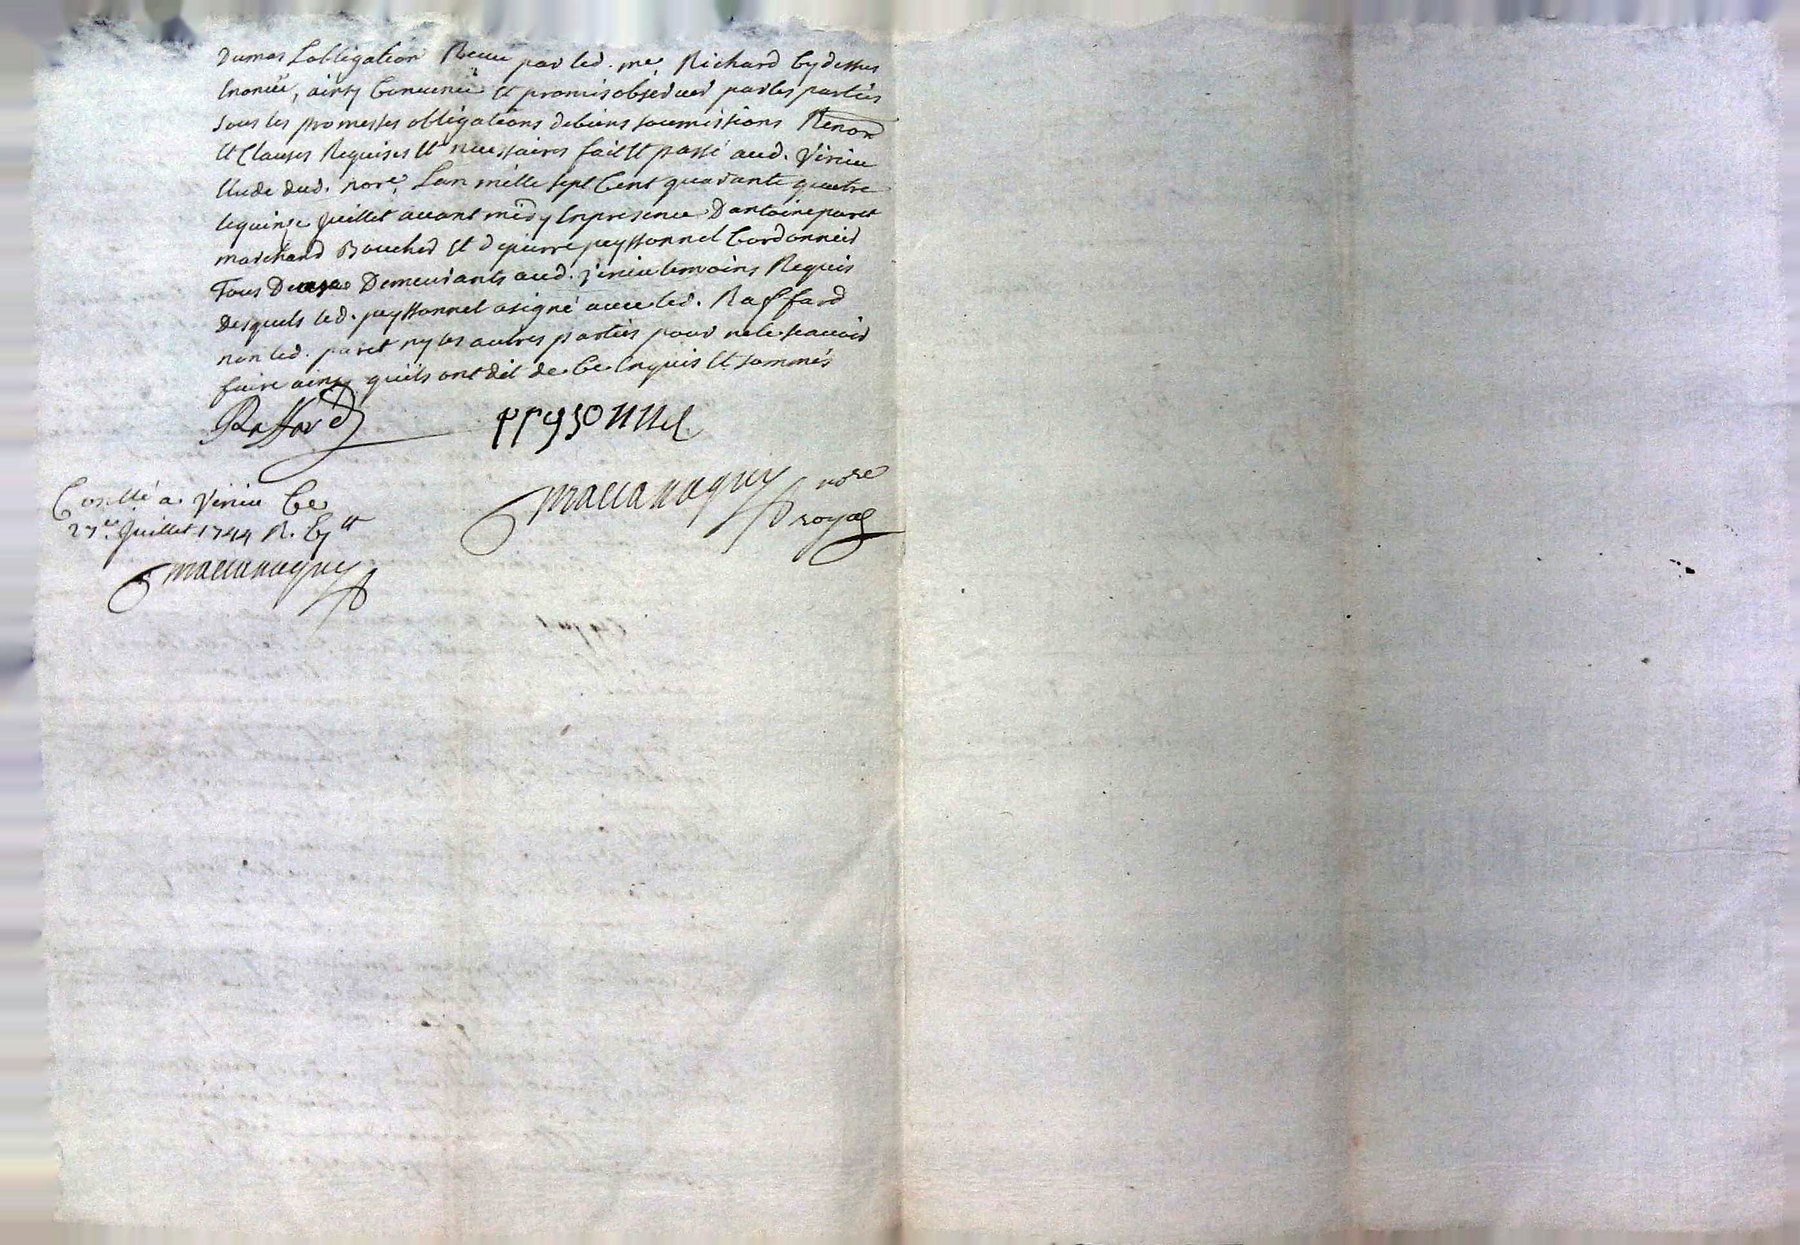 Dumas Lobligation Receu par led. me Richard Cy dessus
Enoncée, ainsy Convenu Et promis observer par les parties
sous les promesses obligations de biens soumissions Renon
Et Clauses Requises Et necessaires fait Et passé aud. Virieu
Etude dud. nore. Lan mille sept Cent quarante quatre
le quinze Juillet avant midy En presence D'antoine paret
marchand Boucher Et de pierre peyssonnel Cordonnier
Tous Deux Demeurants aud. Virieu temoins Requis
Desquels led. peyssonnel a signé avec led. Raffard
non led. paret ny les autres parties pour ne le scavoir
faire ainsy quils ont dit de Ce Enquis Et sommés
Raffard peysonnel
maccanaguy nore
royal
Conllé a Virieu Ce
27e. Juillet 1744 R.
maccanaguy